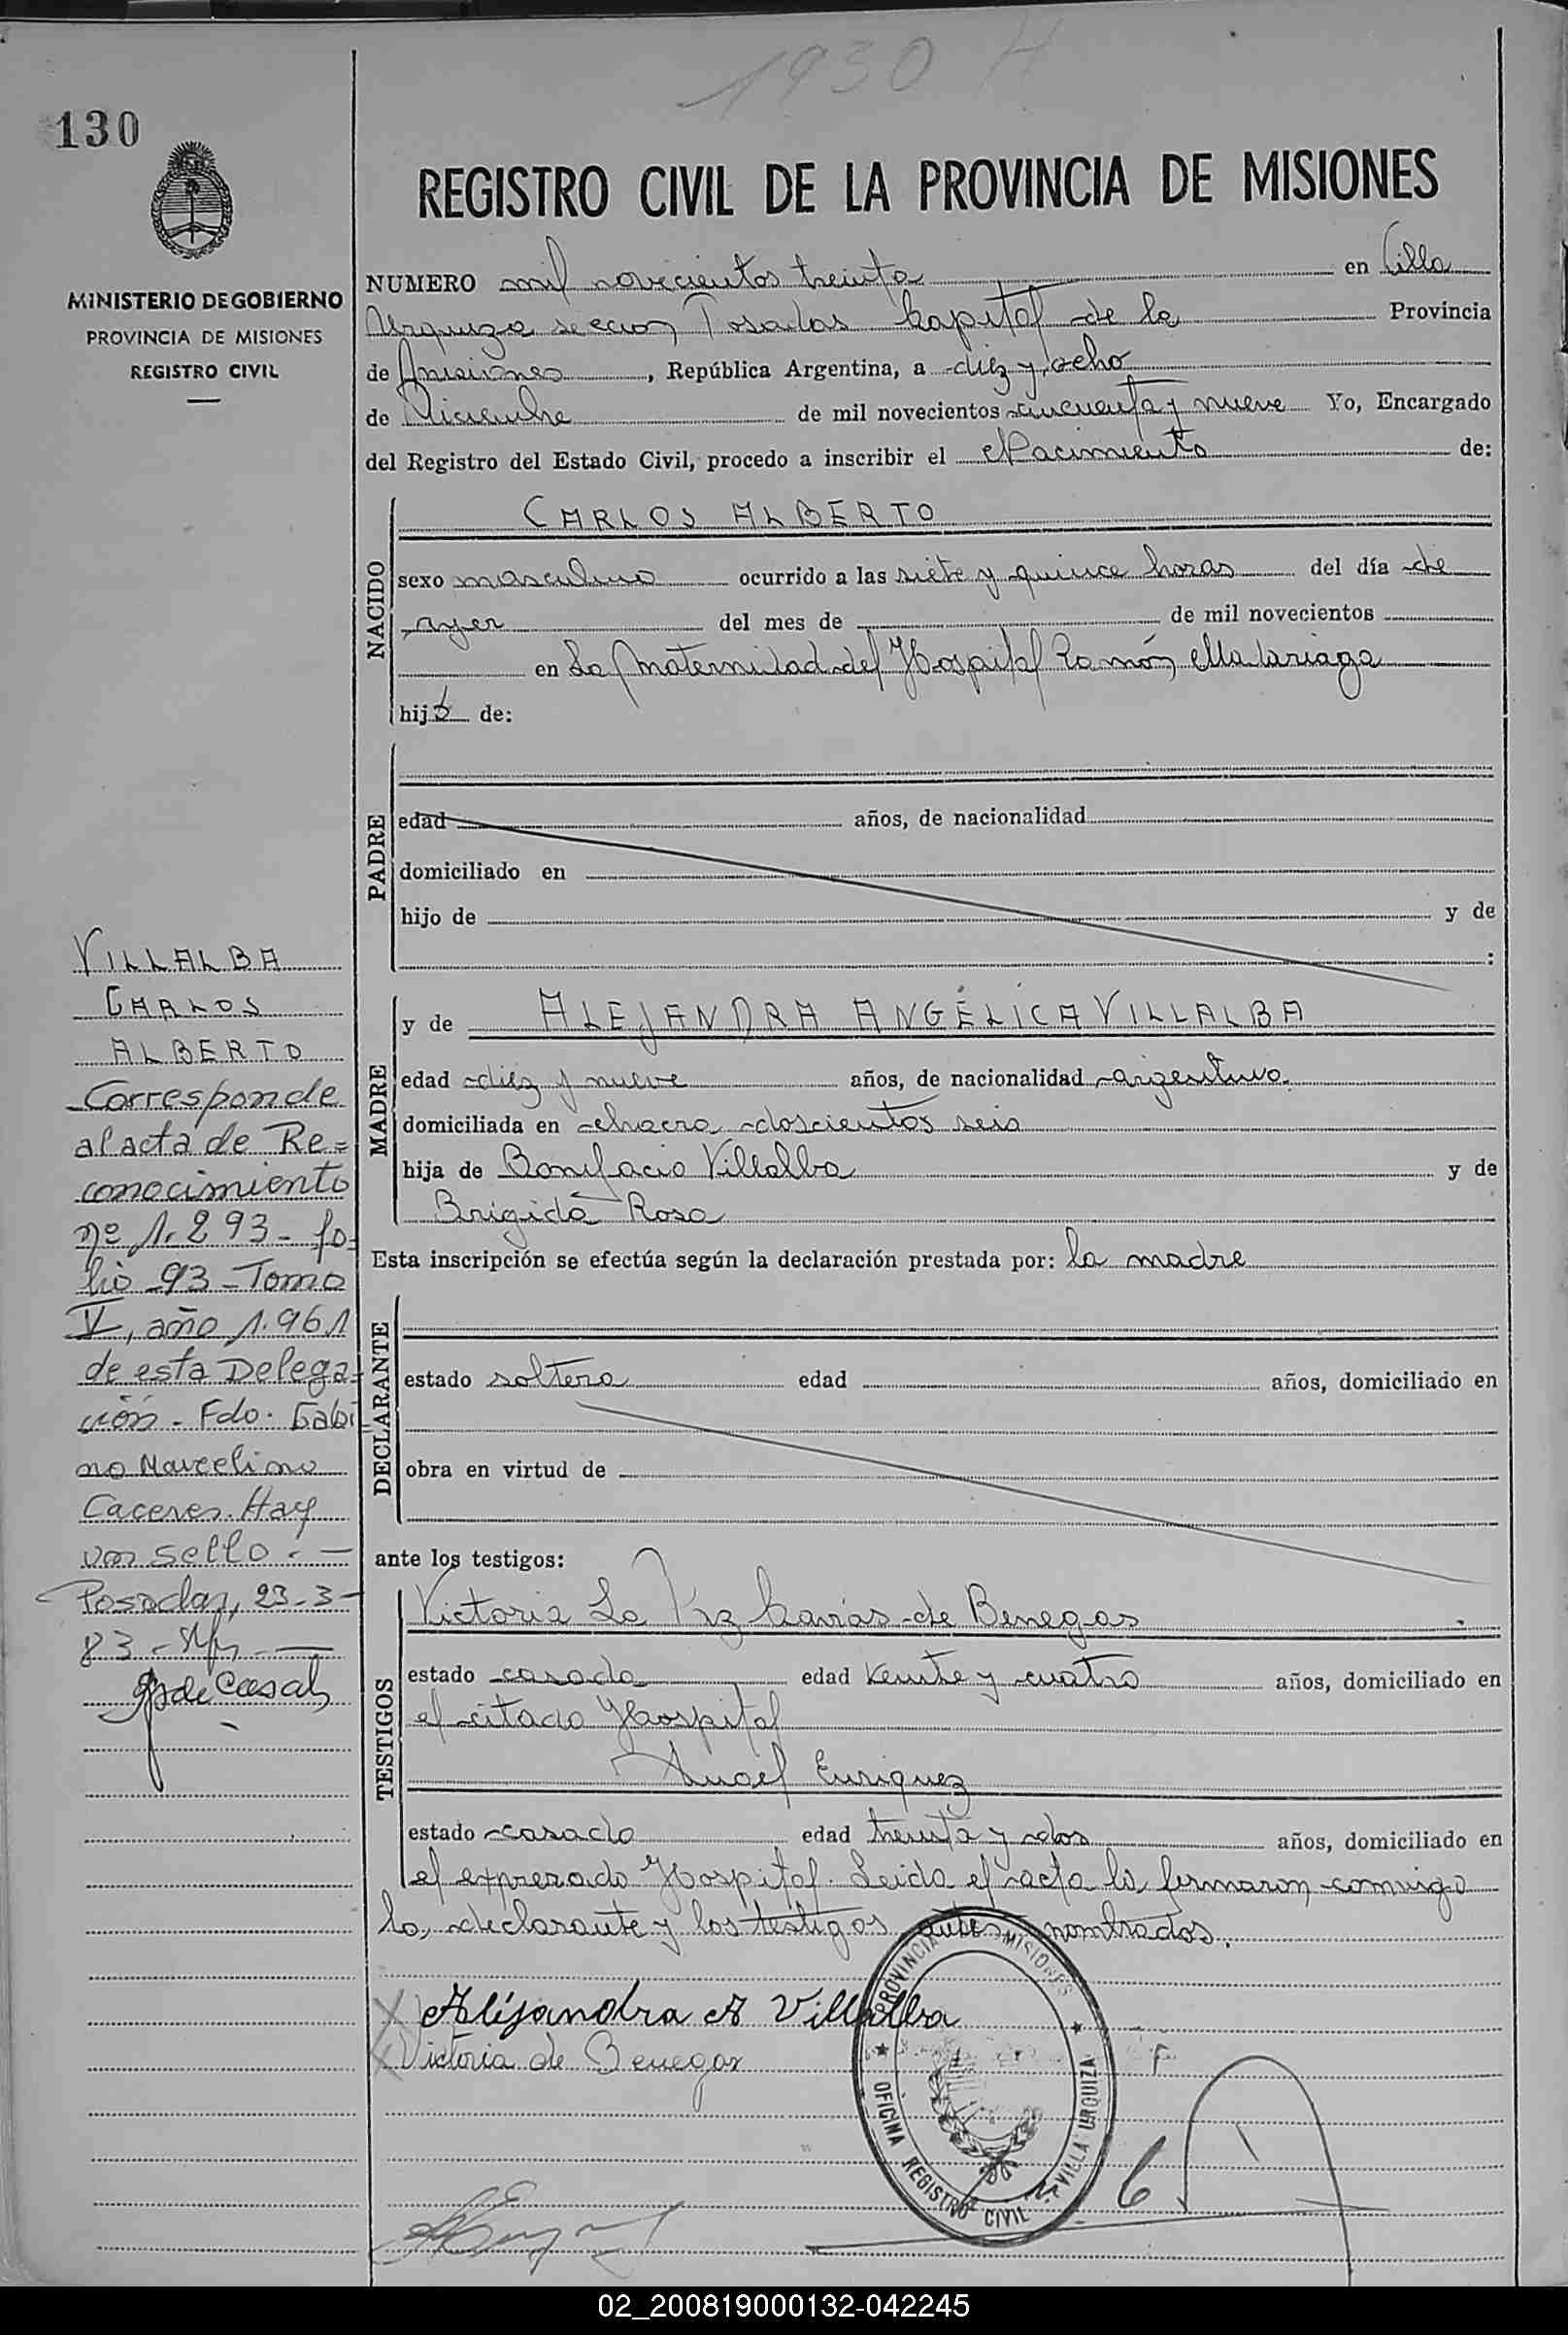 1930 H
130
REGISTRO CIVIL DE LA PROVINCIA DE MISIONES
MINISTERIO DE GOBIERNO
PROVINCIA DE MISIONES
REGISTRO CIVIL
NUMERO mil novecientos treinta en Villa
Urquiza seccion Posadas Capital de la Provincia
de Misiones, República Argentina, a diez y ocho
de Diciembre de mil novecientos cincuenta y nueve Yo, Encargado
del Registro del Estado Civil, procedo a inscribir el Nacimiento de:
NACIDO
CARLOS ALBERTO
sexo masculino ocurrido a las siete y quince horas del día de
ayer del mes de de mil novecientos
en La Maternidad del Hospital Ramón Madariaga
hijo de:
PADRE
edad años, de nacionalidad
domiciliado en
hijo de y de
:
MADRE
y de ALEJANDRA ANGÉLICA VILLALBA
edad diez y nueve años, de nacionalidad argentina
domiciliada en chacra doscientos seis
hija de Bonifacio Villalba y de
Brigida Rosa
Esta inscripción se efectúa según la declaración prestada por: la madre
DECLARANTE
estado soltera edad años, domiciliado en
obra en virtud de
ante los testigos:
TESTIGOS
Victoria La Paz de Benegas
estado casada edad veinte y cuatro años, domiciliado en
el citado Hospital
Angel Enriquez
estado casado edad treinta y dos años, domiciliado en
el expresado Hospital. Leida el acta la firmaron conmigo
la declarante y los testigos antes nombrados.
Alejandra A Villalba
Victoria de Benegas
PROVINCIA MISIONES
OFICINA REGISTRO CIVIL VILLA URQUIZA
VILLALBA
CARLOS
ALBERTO
Corresponde
al acta de Re=
conocimiento
nº 1.293- fo-
lio 93-Tomo
V, año 1.961
de esta Delega-
ción - Fdo. Gabi-
no Marcelino
Caceres. Hay
un sello.-
Posadas, 23-3-
83-
de Casals
02_200819000132-042245